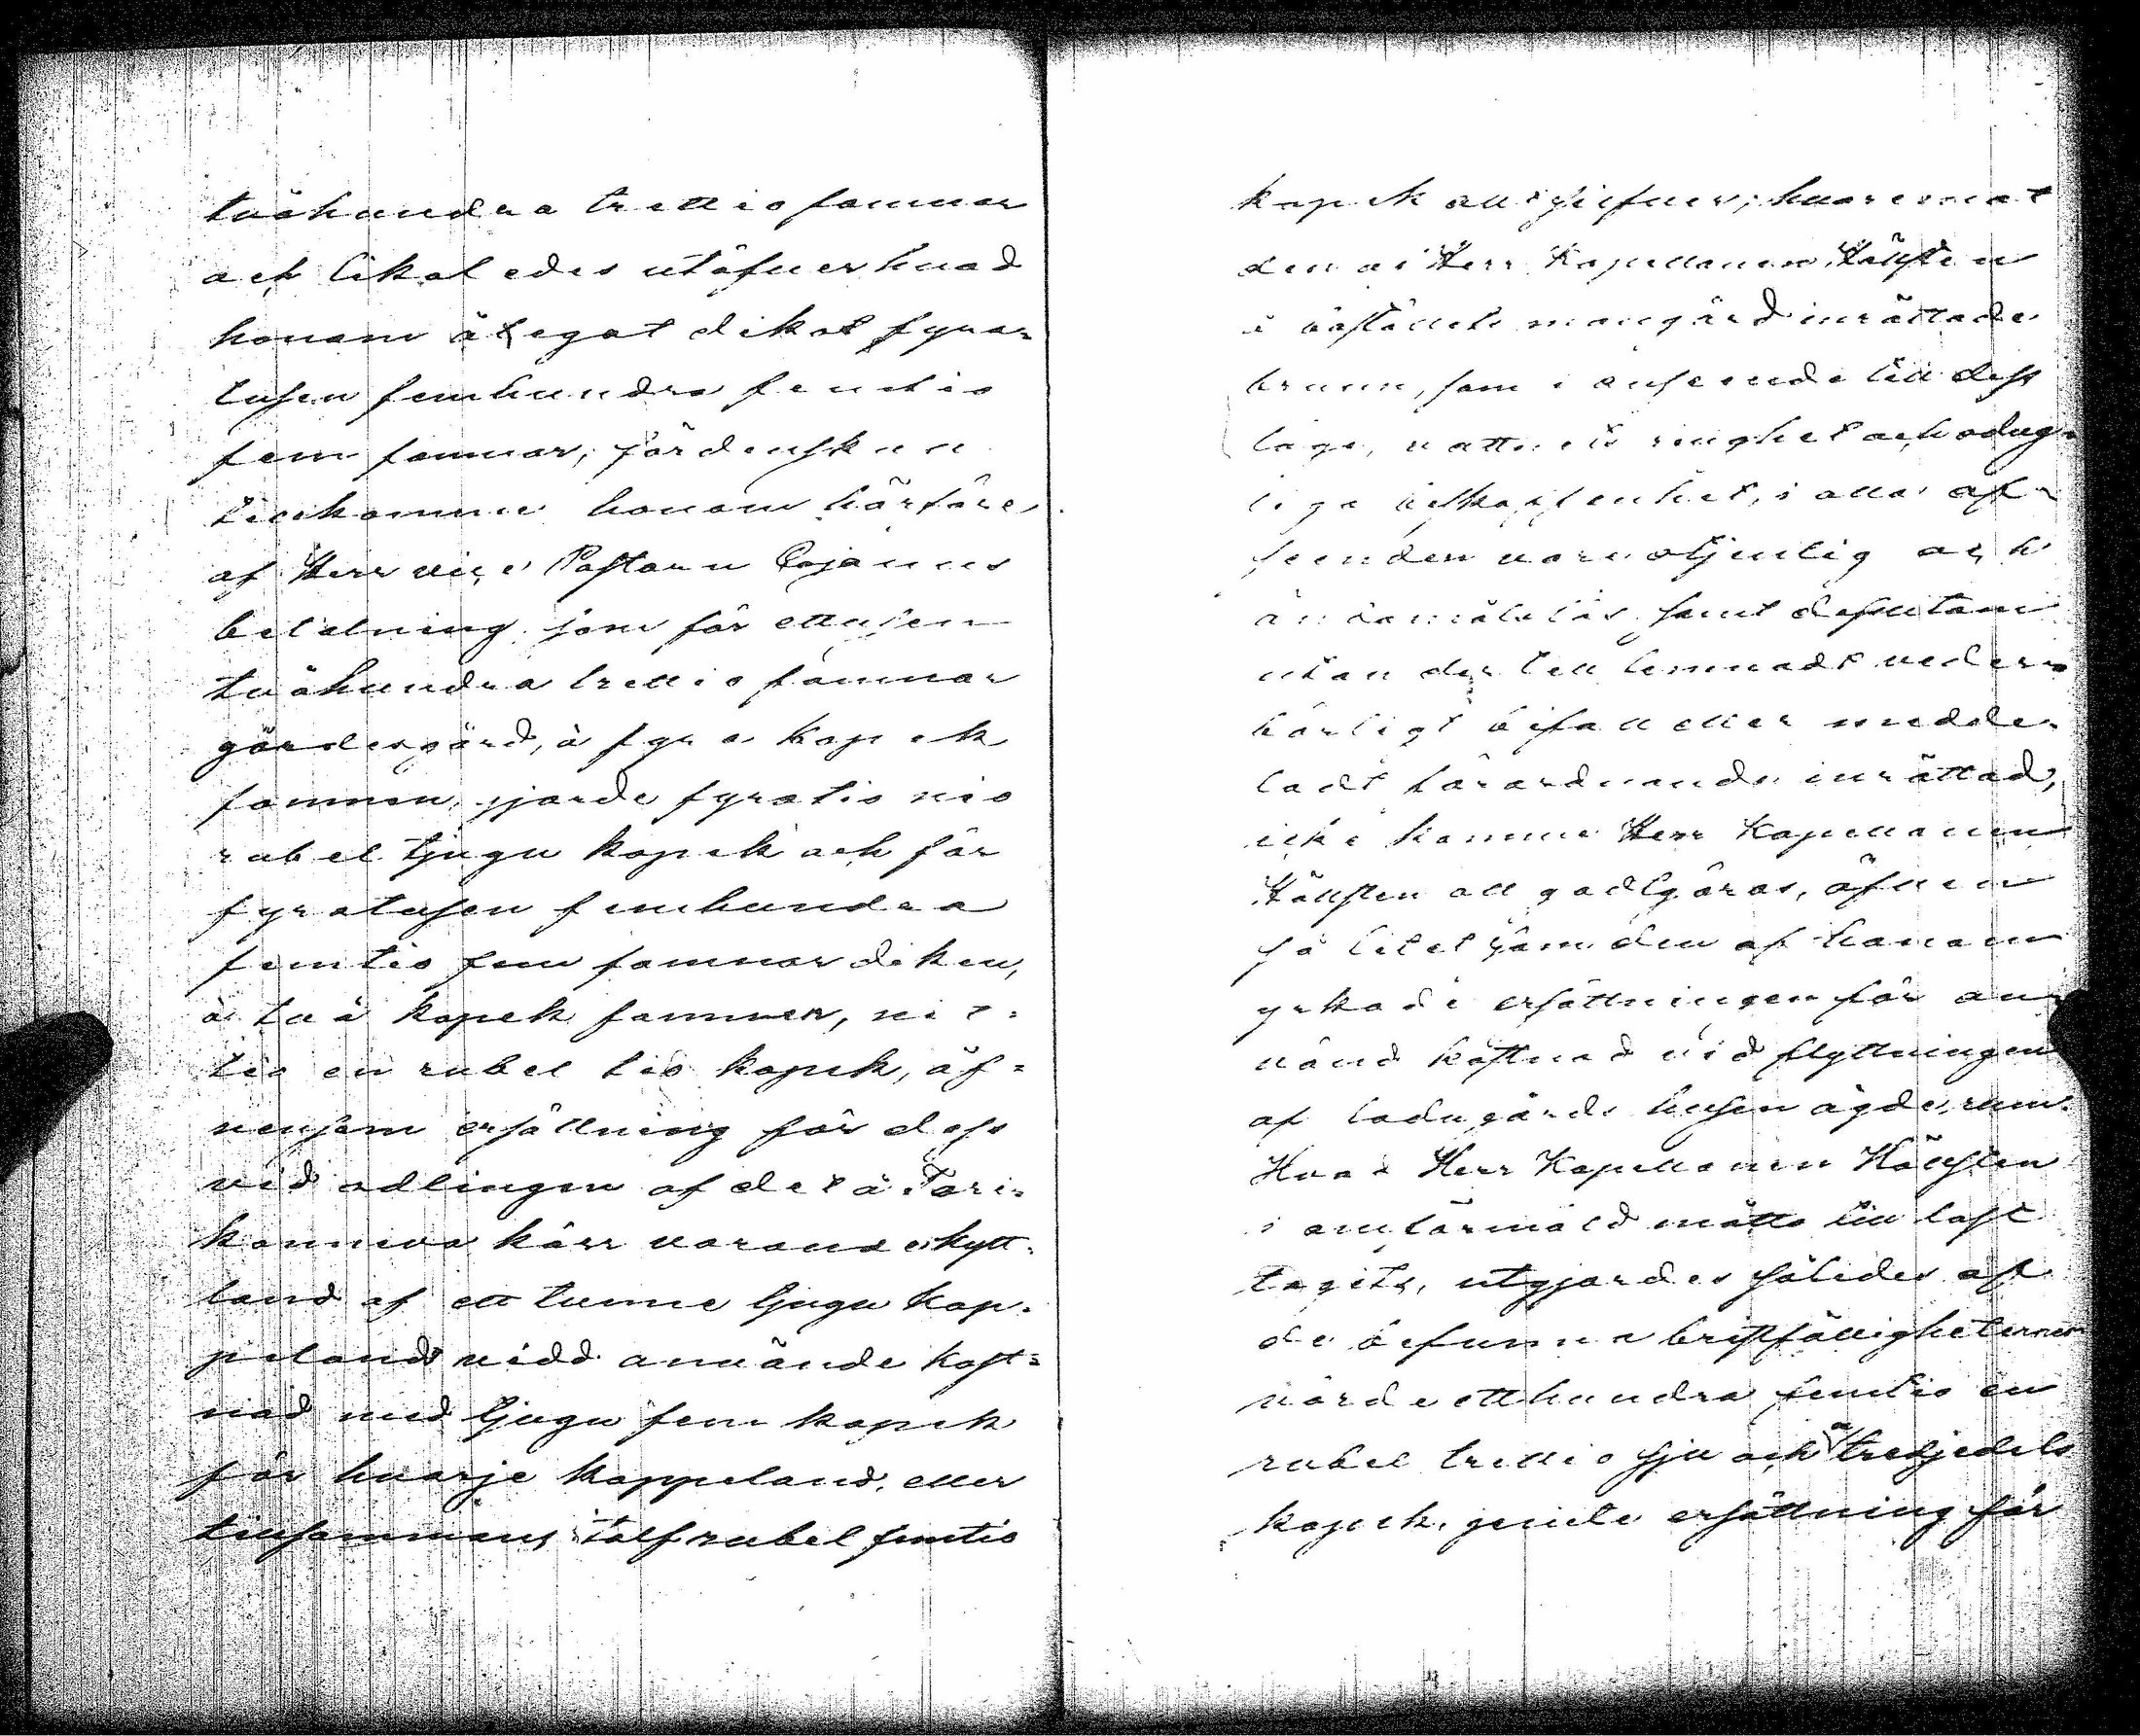 tvåhundra trettio famnar
och likaledes utöfver hvad
honom ålegat dikat fyra=
tusen femhundra femtio
fem famnar, fördenskull
tillkomme honom härföre
af Herr vice Pastorn Cajanus
betalning, som för ettusen
tvåhundra trettio famnar
gärdesgård, à fyra kopek
famnen, gjorde fyratio nio
rubel tjugu kopek och för
fyratusen femhundra
femtio fem famnar diken,
à två kopek famnen, nit=
tio en rubel tio kopek, äf=
vensom ersättning för dess
vid odlingen af det å Tari=
kanneva kärr varande kytt=
land af ett tunne tjugu kap=
pelands vidd använde kost=
nad med tjugu fem kopek
för hvarje kappeland, eller
tillsammans Tolf rubel femtio
kopek allt silfver; hvaremot
den af Herr Kapellanen Hällsten
i boställets mangård inrättade
brunn, som i anseende till dess
läge, vattnets ringhet och odug=
liga beskaffenhet, i alla af=
seenden vore otjenlig och
ändamålslös samt dessutom
utan der till lemnadt veder=
börligt bifall eller medde=
ladt förordnande inrättad,
icke komme Herr Kapellanen
Hällsten att godtgöras, äfven
så litet som den af honom
yrkade ersättningen för an=
vänd kostnad vid flyttningen
af ladugårds husen ägde rum.
Hvad Herr Kapellanen Hällsten
i omförmäld måtto till last
tagits, utgjordes således af
de befunna bristfälligheternes
värde etthundra femtio en
rubel trettio sju och en tredjedels
kopek, gente ersättning för